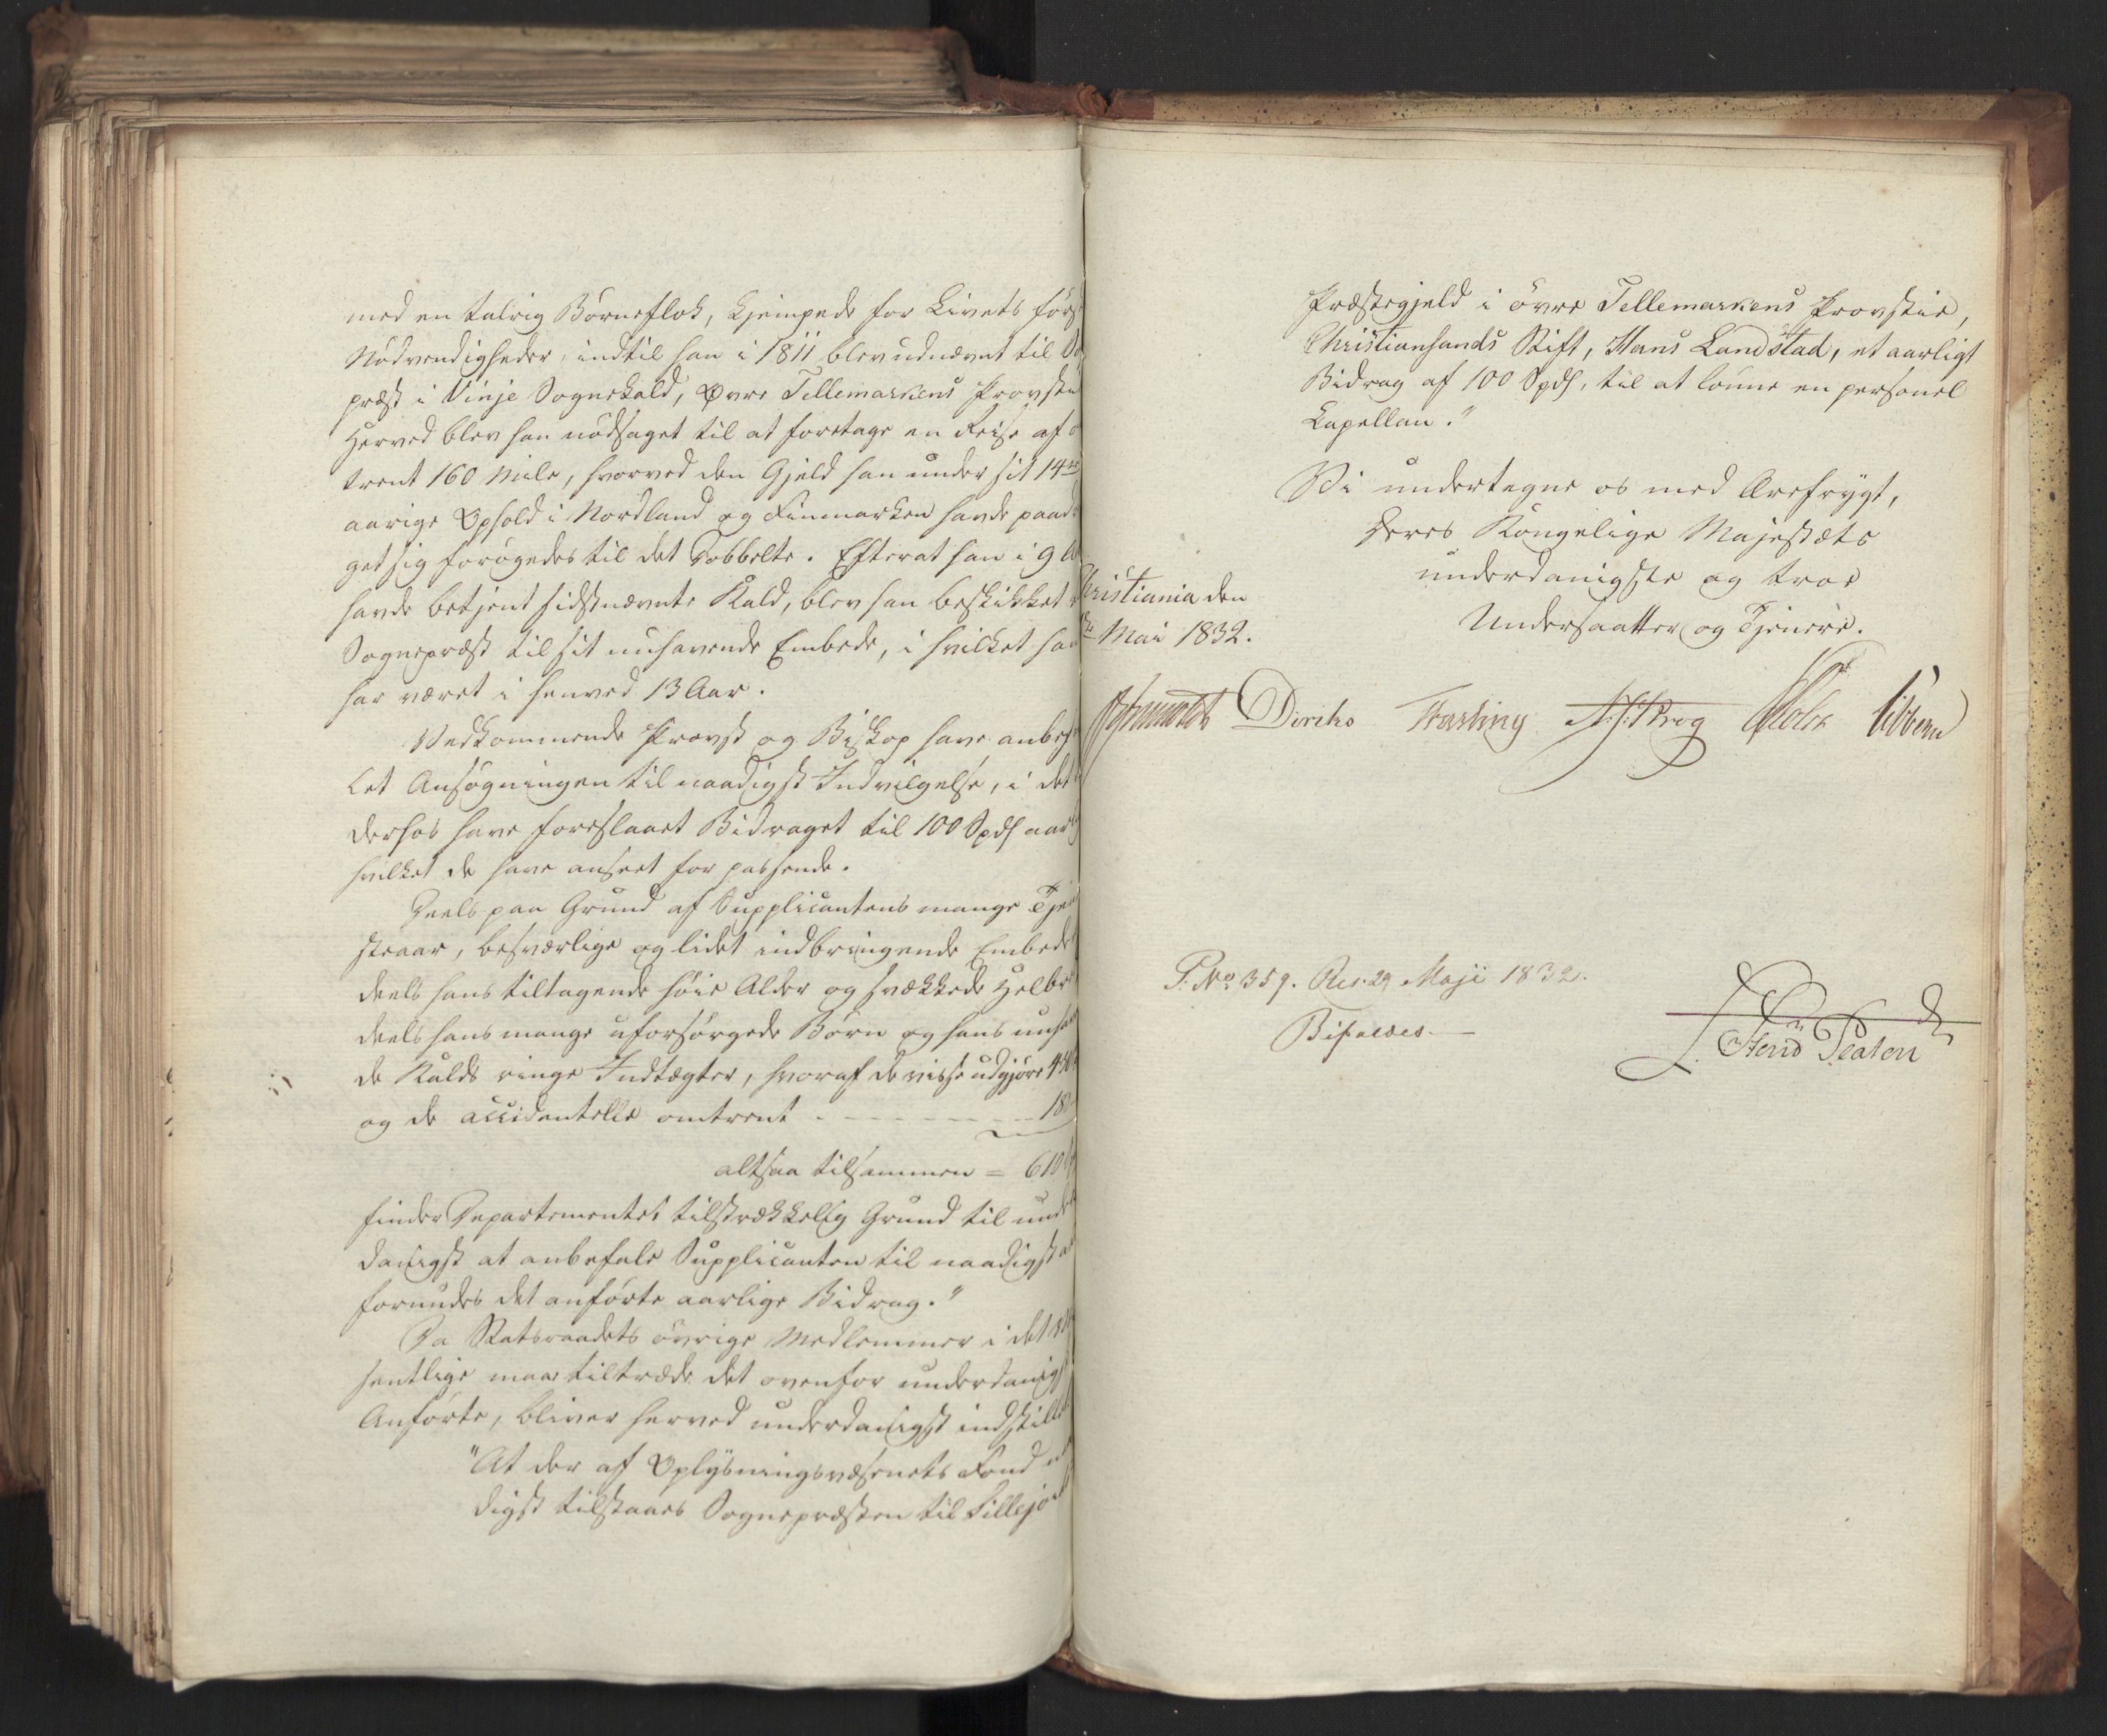 med en talrig Børneflok, kjempede for Livets først
Nødvendigheder, indtil han i 1811 blev udnævnt til So
præst i Vinje Sognekald, Øvre Tellemarkens Provstie
Herved blev han nødsaget til at foretage en Reise af o
trent 160 Mile, hvorved den Gjeld han under sit 14
aarige Ophold i Nordland og Finmarken havde paad
get sig forøgedes til det Dobbelte. Efterat han i 9 A
havde betjent sidstnævnte Kald, blev han beskikket
Sognepræst til sit nuhavende Embede, i hvilket han
har været i henved 13 Aar.
Vedkommende Provst og Biskop have anbef
let Ansøgningen til naadigst Indvilgelse, i det
derhos have foreslaaet Bidraget til 100 Spd aarl
hvilket de have anseet for passende.
Deels paa Grund af Supplicantens mange Tjen
steaar, besværlige og lidet indbringende Embed
deels hans tiltagende høie Alder og svækkede Helbre
deels hans mange uforsørgede Børn og hans nuha
de Kalds ringe Indtægter, hvoraf de visse udgjøre 430
og de accidentelle omtrent - - - - - - 180
altsaa tilsammen = 610
finder Departementet tilstrækkelig Grund til unde
danigst at anbefale Supplicanten til naadigst a
forundes det anførte aarlige Bidrag."
Da Statsraadets øvrige Medlemmer i det væ
sentlige maae tiltræde det ovenfor underdanigst
Anførte, bliver herved underdanigst indstillet
"At der af Oplysningsvæsenets Fond
digst tilstaaes Sognepræsten til Sillejord
Præstegjeld i øvre Tellemarkens Provstie,
Christiansands Stift, Hans Landstad, et aarligt
Bidrag af 100 Spd, til at lønne en personel
Capellan."
Vi undertegne os med Ærefrygt,
Deres Kongelige Majestæts
underdanigste og troe
Undersaatter og Tjenere.
Christiania den
Mai 1832.
Diriks Fasting Krog Holst Vibbern
P. No 359. Res. 29 Maji 1832.
Bifaldes.